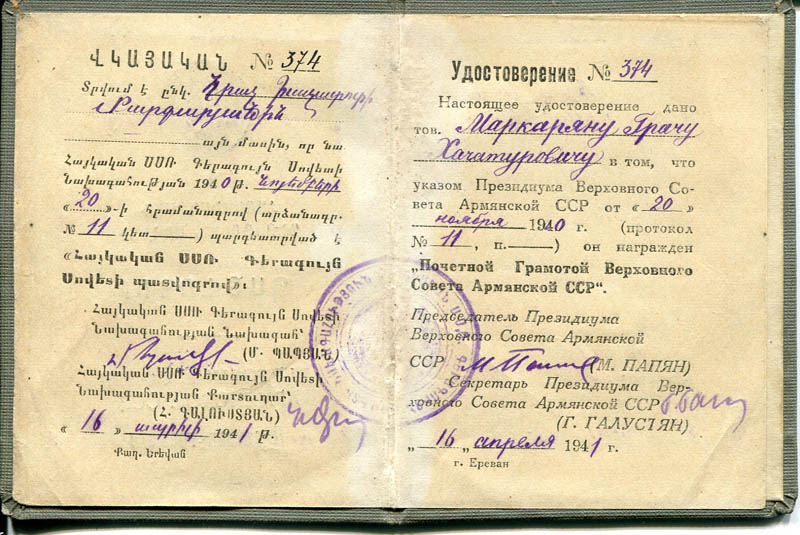 ՎԿԱՅԱԿԱՆ № 374
Տրվում է ընկ. Հրաչ Խաչատուրի
Մարգարյանին
այն մասին, որ նա
Հայկական ՍՍՌ Գերագույն Սովետի
Նախագահության 1940 թ. նոյեմբերի
« 20 »-ի հրամանագրով (արձանագր.
№ 11 կետ ) պարգեատրված է
«Հայկական ՍՍՌ Գերագույն
Սովետի պատվոգրով»։
Հայկական ՍՍՌ Գերագույն Սովետի
Նախագահության Նախագահ՝
(Մ. ՊԱՊՅԱՆ)
Հայկական ՍՍՌ Գերագույն Սովետի
Նախագահության Քարտուղար՝
(Հ. ԳԱԼՈՒՍՏՅԱՆ)
« 16 » ապրիլի 1941 թ.
Քաղ. Երեվան
Удостоверение № 374
Настоящее удостоверение дано
тов. Маркаряну Грачу
Хачатуровичу в том, что
указом Президиума Верховного Со-
вета Армянской ССР от « 20 »
ноября 1940 г. (протокол
№ 11, п. ) он награжден
„Почетной Грамотой Верховного
Совета Армянской ССР“.
Председатель Президиума
Верховного Совета Армянской
ССР (М. ПАПЯН)
Секретарь Президиума Вер-
ховного Совета Армянской ССР
(Г. ГАЛУСТЯН)
„ 16 „ апреля 1941 г.
г. Ереван